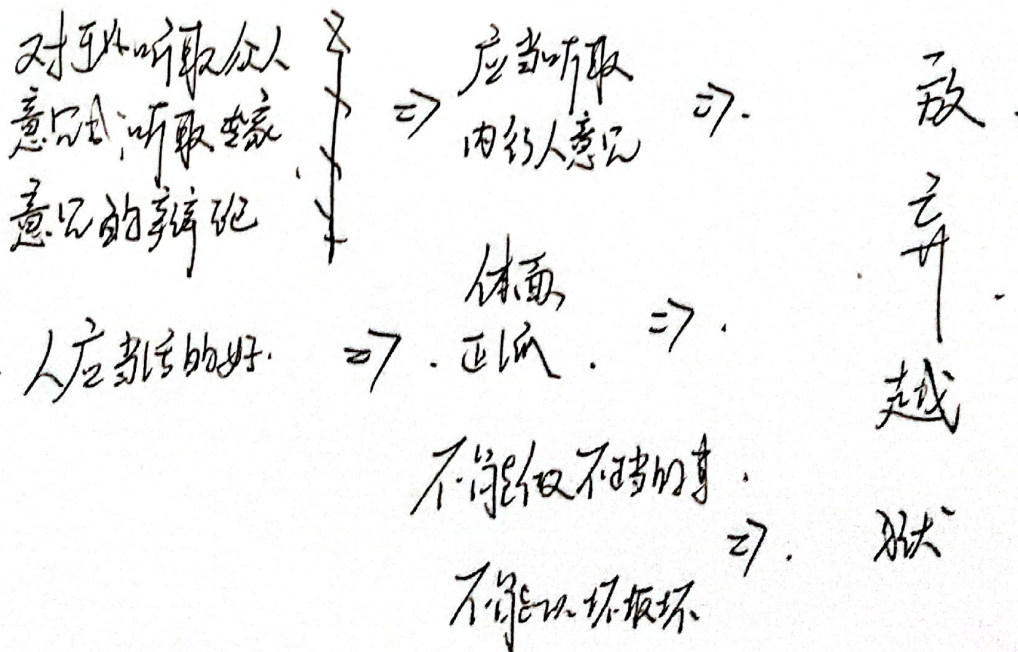 对于外听取众人
意见或听取专家
意见的辩论
⇒
应当听取
内行人意见
⇒.
放
弃
越
狱
人应当活的好.
⇒.
体面
正派.
⇒.
不能做不当的事.
不能以坏报坏
⇒.